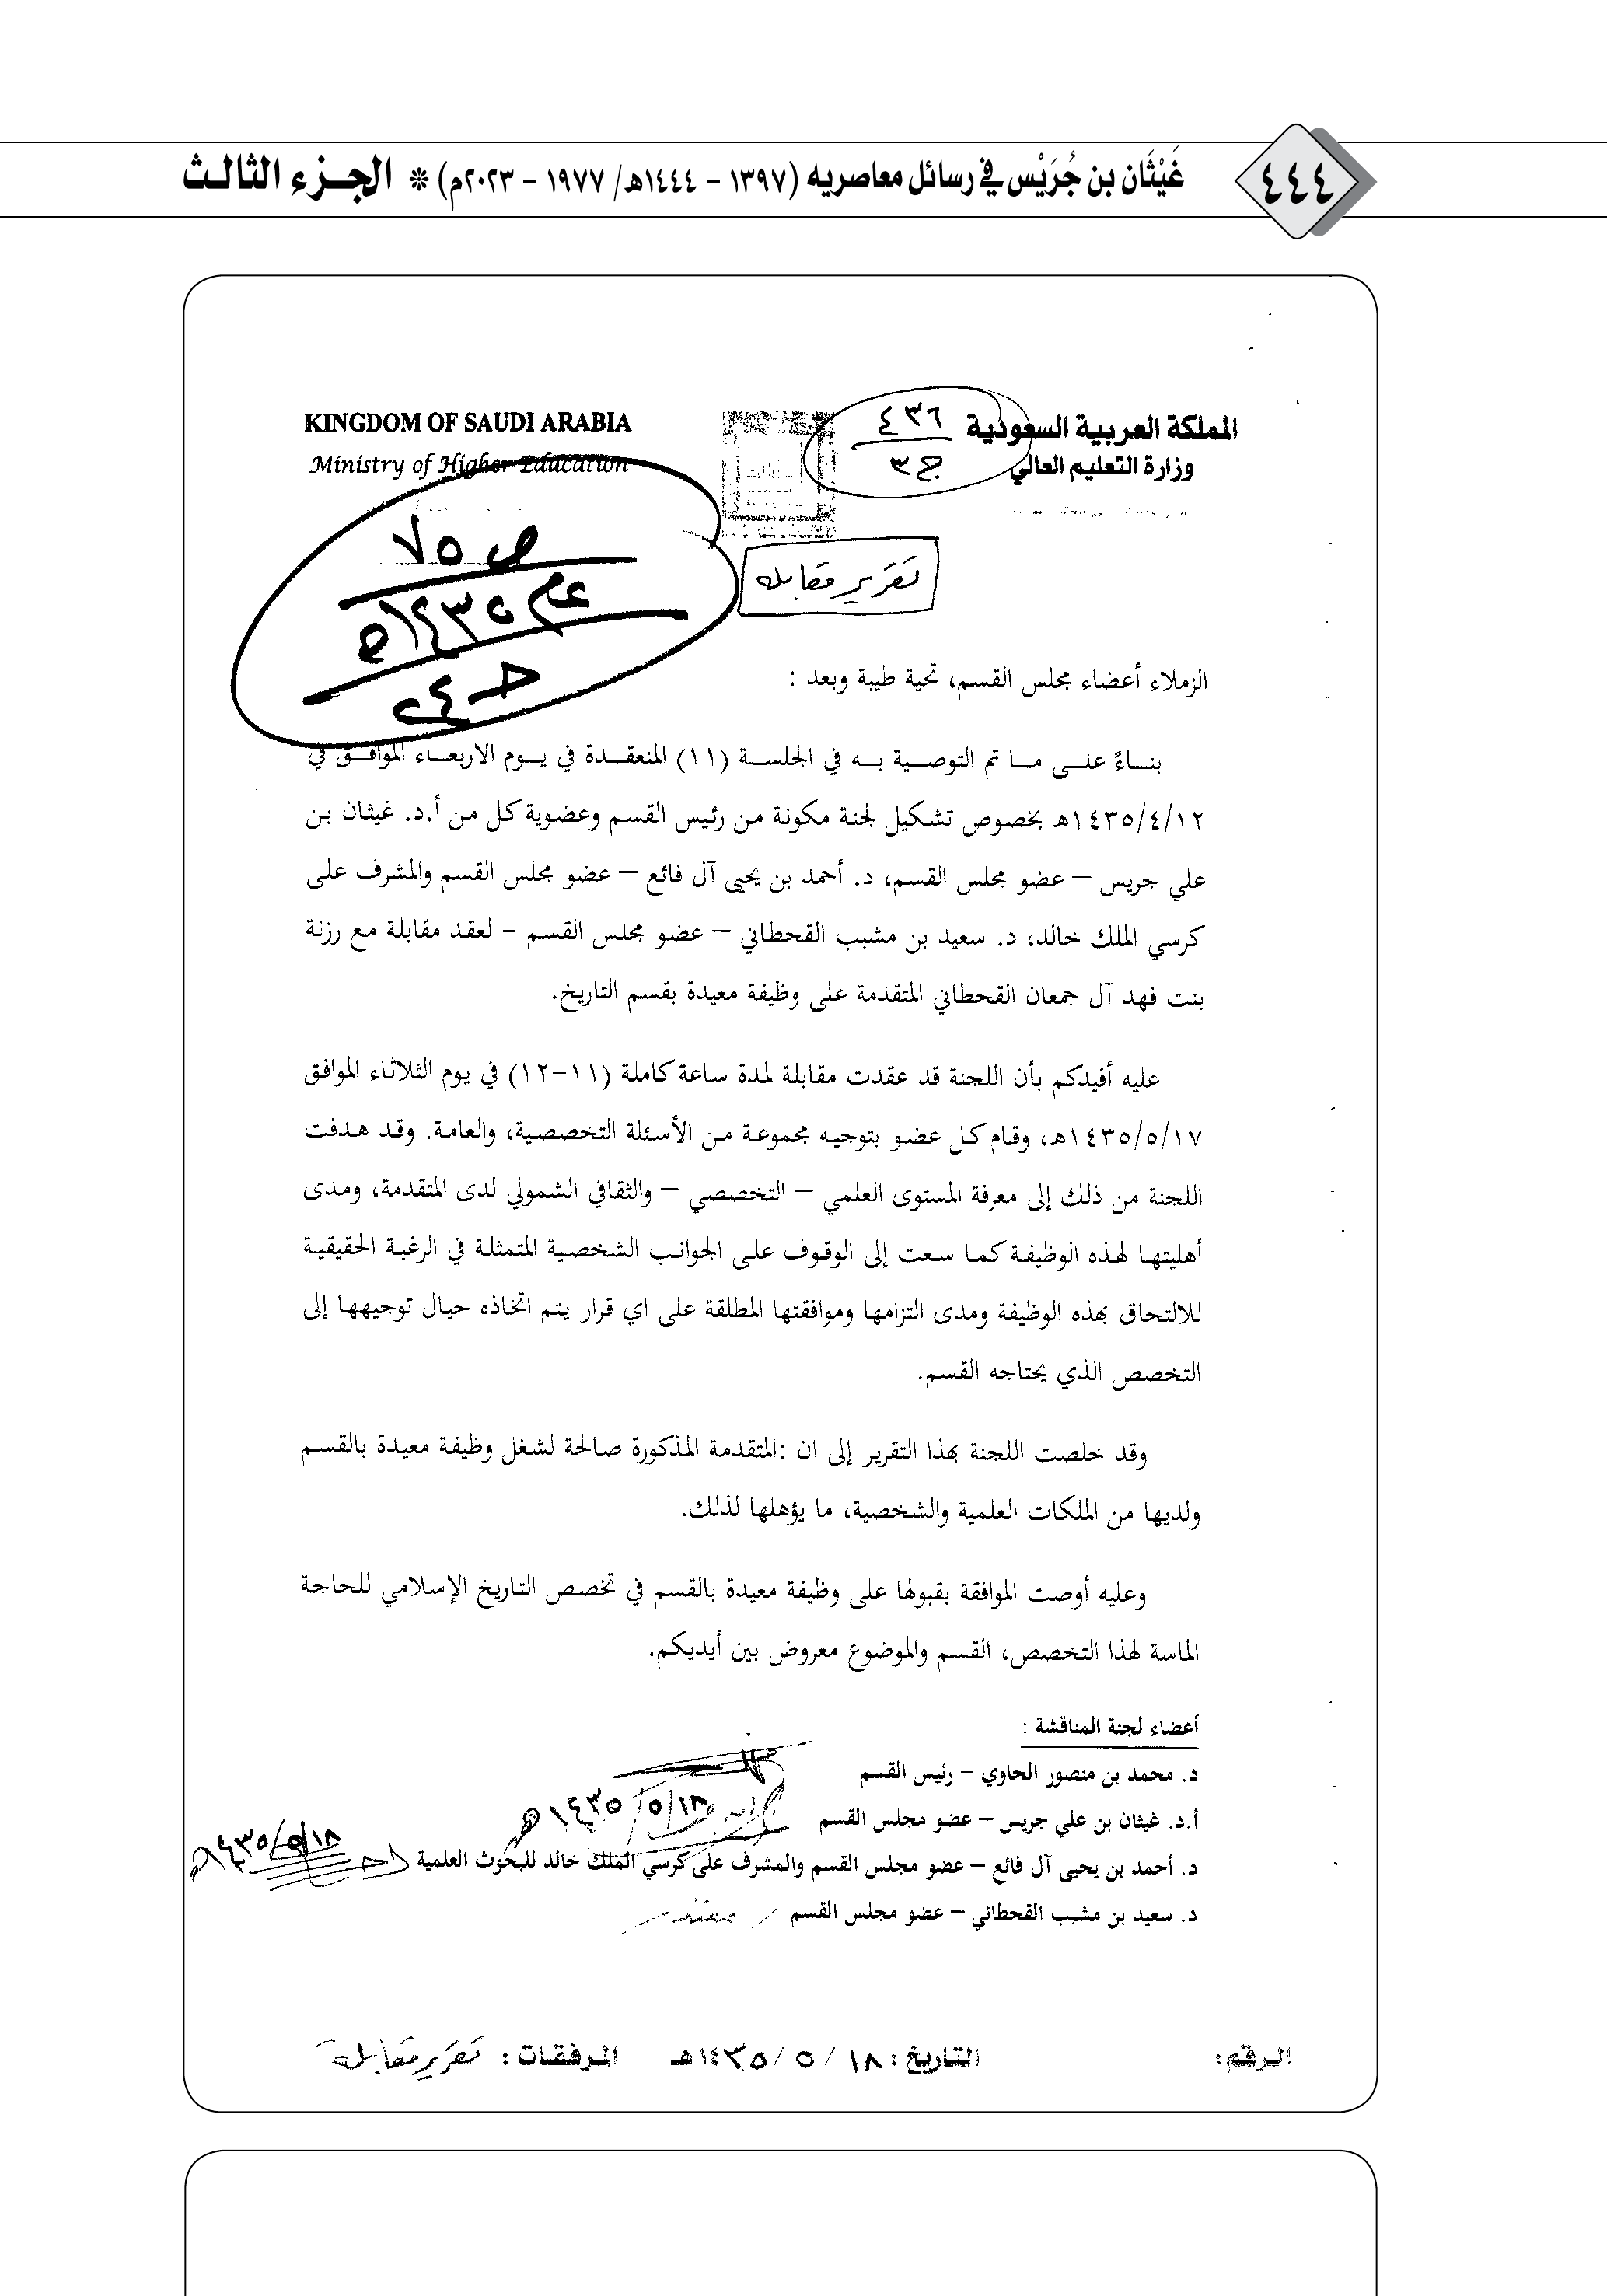 ٤٤٤
غَيْثَان بن جُرَيْس في رسائل معاصريه (١٣٩٧ - ١٤٤٤هـ/ ١٩٧٧ - ٢٠٢٣م) * الجزء الثالث
المملكة العربية السعودية
وزارة التعليم العالي
KINGDOM OF SAUDI ARABIA
Ministry of Higher Education
٤٣٦
ج٣
ص ٧٥
عام ١٤٣٥هـ
حـ ٢٤
تقرير مقابلة
الزملاء أعضاء مجلس القسم، تحية طيبة وبعد :
بناءً على ما تم التوصية به في الجلسة (١١) المنعقدة في يوم الاربعاء الموافق في
١٤٣٥/٤/١٢هـ بخصوص تشكيل لجنة مكونة من رئيس القسم وعضوية كل من أ.د. غيثان بن
علي جريس – عضو مجلس القسم، د. أحمد بن يحيى آل فائع – عضو مجلس القسم والمشرف على
كرسي الملك خالد، د. سعيد بن مشبب القحطاني – عضو مجلس القسم - لعقد مقابلة مع رزنة
بنت فهد آل جمعان القحطاني المتقدمة على وظيفة معيدة بقسم التاريخ.
عليه أفيدكم بأن اللجنة قد عقدت مقابلة لمدة ساعة كاملة (١١-١٢) في يوم الثلاثاء الموافق
١٤٣٥/٥/١٧هـ، وقام كل عضو بتوجيه مجموعة من الأسئلة التخصصية، والعامة. وقد هدفت
اللجنة من ذلك إلى معرفة المستوى العلمي – التخصصي – والثقافي الشمولي لدى المتقدمة، ومدى
أهليتها لهذه الوظيفة كما سعت إلى الوقوف على الجوانب الشخصية المتمثلة في الرغبة الحقيقية
للالتحاق بهذه الوظيفة ومدى التزامها وموافقتها المطلقة على اي قرار يتم اتخاذه حيال توجيهها إلى
التخصص الذي يحتاجه القسم.
وقد خلصت اللجنة بهذا التقرير إلى ان :المتقدمة المذكورة صالحة لشغل وظيفة معيدة بالقسم
ولديها من الملكات العلمية والشخصية، ما يؤهلها لذلك.
وعليه أوصت الموافقة بقبولها على وظيفة معيدة بالقسم في تخصص التاريخ الإسلامي للحاجة
الماسة لهذا التخصص، القسم والموضوع معروض بين أيديكم.
أعضاء لجنة المناقشة :
د. محمد بن منصور الحاوي – رئيس القسم
أ.د. غيثان بن علي جريس – عضو مجلس القسم ١٤٣٥/٥/١٨هـ
د. أحمد بن يحيى آل فائع – عضو مجلس القسم والمشرف على كرسي الملك خالد للبحوث العلمية ١٤٣٥/٥/١٨هـ
د. سعيد بن مشبب القحطاني – عضو مجلس القسم
الرقم: التاريخ : ١٨ / ٥ / ١٤٣٥هـ المرفقات : تقرير مقابلة